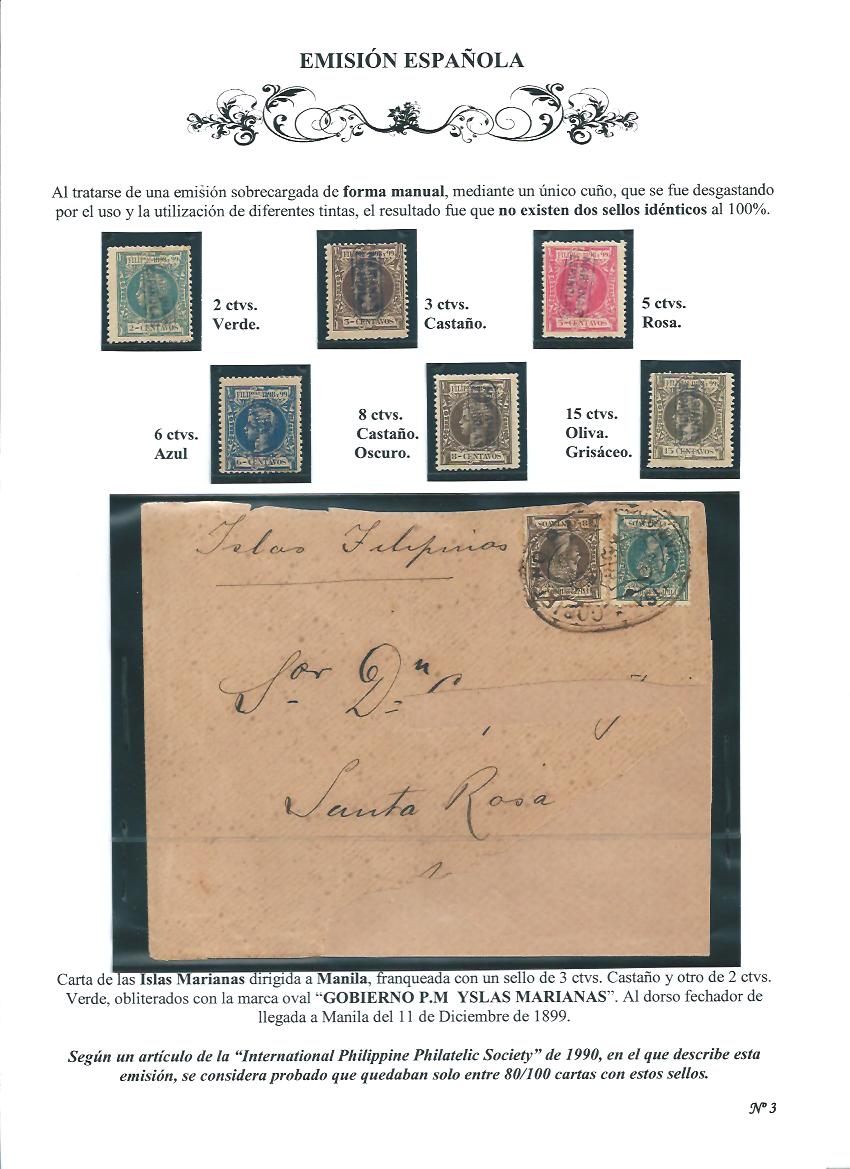 EMISIÓN ESPAÑOLA
Al tratarse de una emisión sobrecargada de forma manual, mediante un único cuño, que se fue desgastando
por el uso y la utilización de diferentes tintas, el resultado fue que no existen dos sellos idénticos al 100%.
FILIPnas 1898 y 99
2-CENTAVOS
2 ctvs.
Verde.
3-CENTAVOS
3 ctvs.
Castaño.
5-CENTAVOS
5 ctvs.
Rosa.
FILIPnas 1898 y 99
6-CENTAVOS
6 ctvs.
Azul
8-CENTAVOS
8 ctvs.
Castaño.
Oscuro.
15 CENTAVOS
15 ctvs.
Oliva.
Grisáceo.
Islas Filipinas
Sor Dn
Santa Rosa
Carta de las Islas Marianas dirigida a Manila, franqueada con un sello de 3 ctvs. Castaño y otro de 2 ctvs.
Verde, obliterados con la marca oval “GOBIERNO P.M YSLAS MARIANAS”. Al dorso fechador de
llegada a Manila del 11 de Diciembre de 1899.
Según un artículo de la “International Philippine Philatelic Society” de 1990, en el que describe esta
emisión, se considera probado que quedaban solo entre 80/100 cartas con estos sellos.
Nº 3